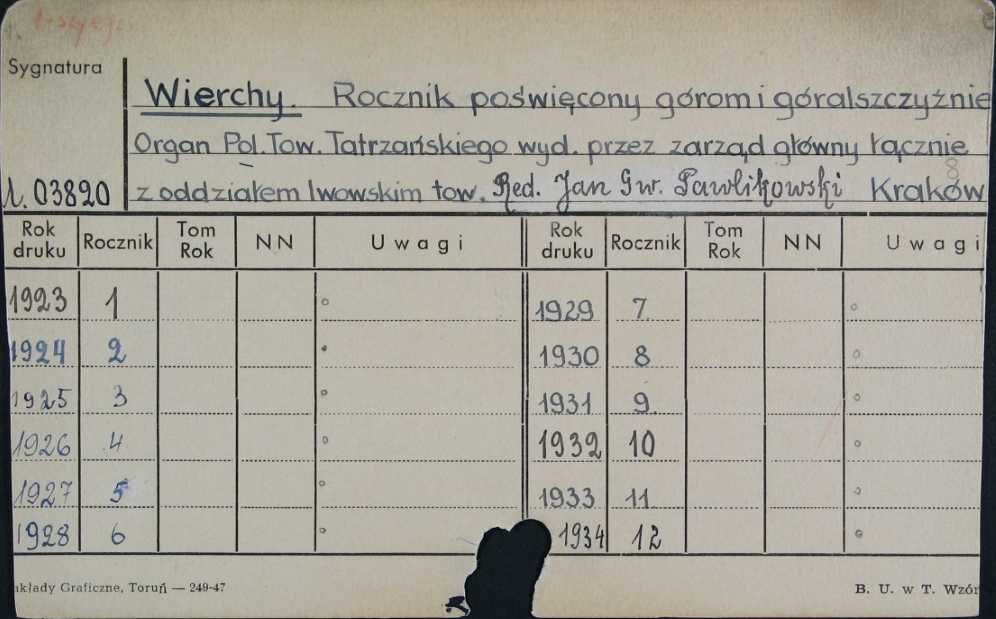 Sygnatura
Wierchy. Rocznik poświęcony górom i góralszczyźnie
Organ Pol. Tow. Tatrzańskiego wyd. przez zarząd główny łącznie
1. 03820 z oddziałem lwowskim tow. Red. Jan Gw. Pawlikowski Kraków
Rok druku Rocznik Tom Rok NN Uwagi Rok druku Rocznik Tom Rok NN Uwagi
1923 1 1929 7
1924 2 1930 8
1925 3 1931 9
1926 4 1932 10
1927 5 1933 11
1928 6 1934 12
akłady Graficzne, Toruń — 249-47 B. U. w T. Wzór